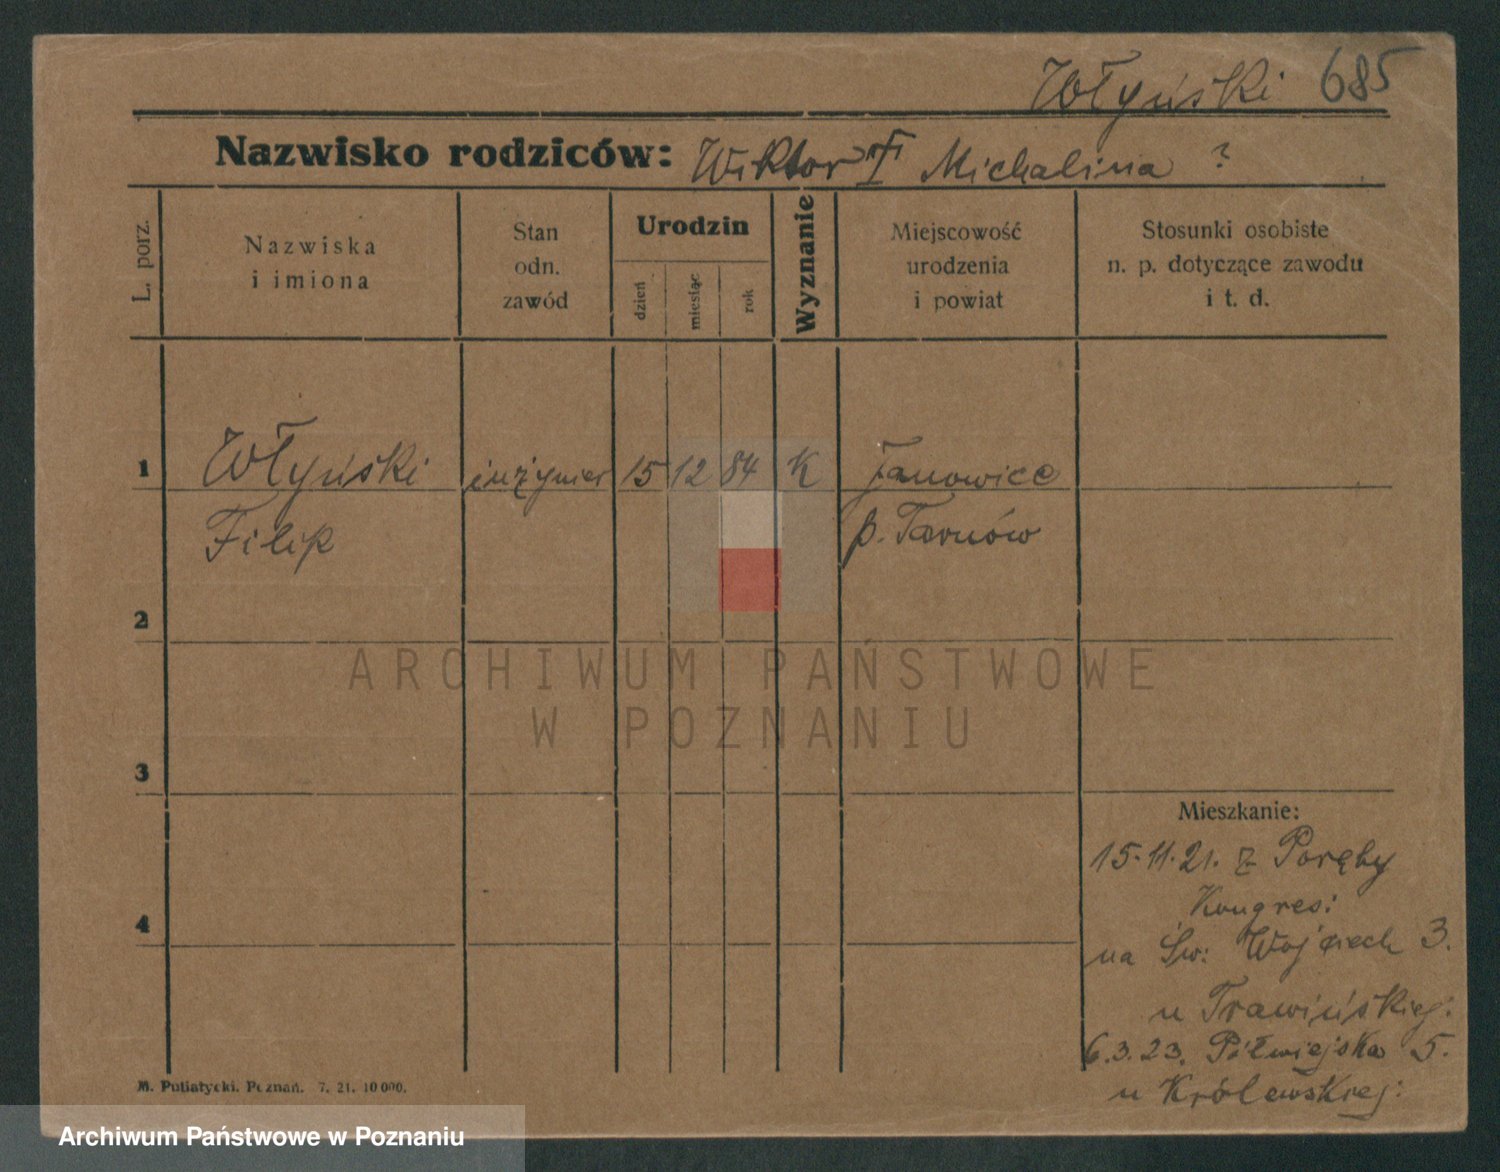 Włyński 685
Nazwisko rodziców: Wiktor Michalina ?
L. porz.
Nazwiska
i imiona
Stan
odn.
zawód
Urodzin
dzień
miesiąc
rok
Wyznanie
Miejscowość
urodzenia
i powiat
Stosunki osobiste
n. p. dotyczące zawodu
i t. d.
1 Włyński inżynier 15 12 84 K Janowice
Filip p. Tarnów
2
ARCHIWUM PAŃSTWOWE
W POZNANIU
3
Mieszkanie:
15.11.21. z Poręby
Kongres:
4
na Św: Wojciech 3.
u Trawińskiej:
6.3.23. Półwiejska 5.
u Królewskiej:
M. Putiatycki. Poznań. 7. 21. 10 000.
Archiwum Państwowe w Poznaniu